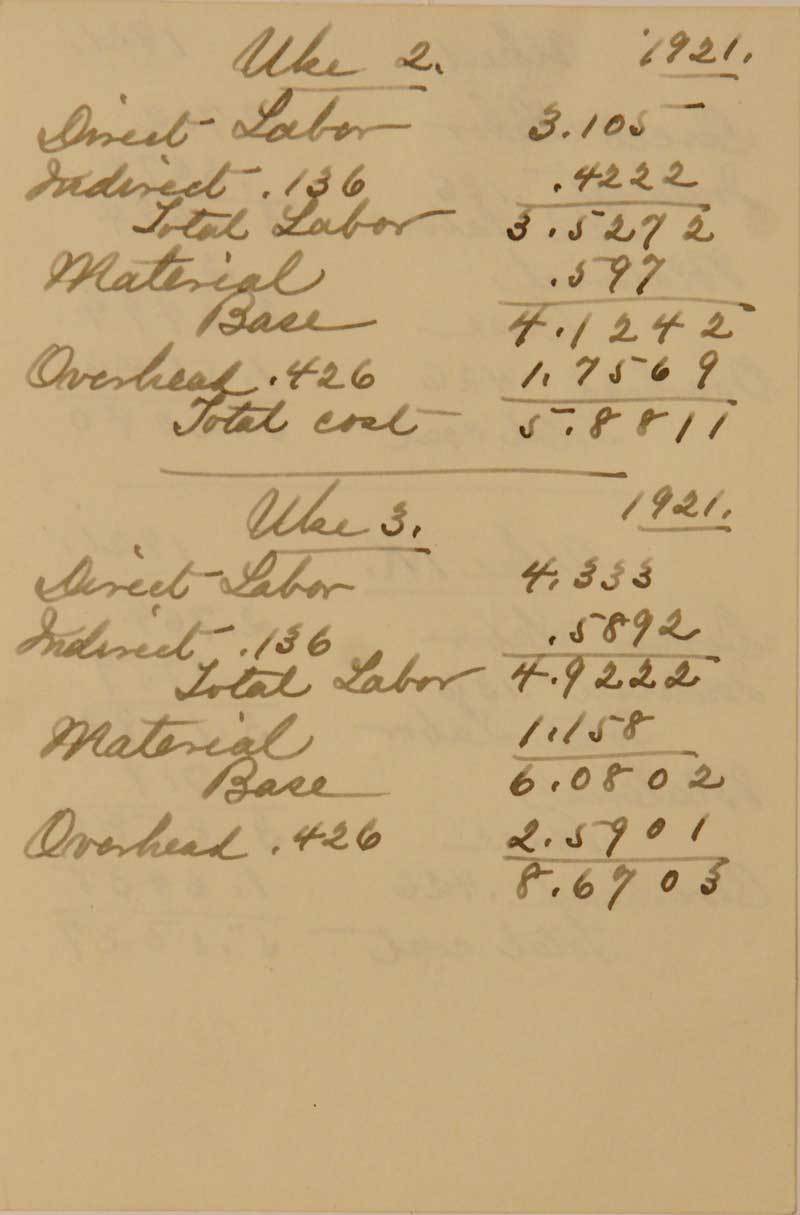 Uke 2. 1921.
Direct Labor 3.105
Indirect .136 .4222
Total Labor 3.5272
Material .597
Base 4.1242
Overhead .426 1.7569
Total cost 5.8811
Uke 3. 1921.
Direct Labor 4.333
Indirect .136 .5892
Total Labor 4.9222
Material 1.158
Base 6.0802
Overhead .426 2.5901
8.6703